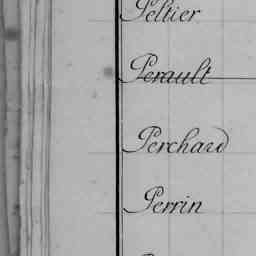 Peltier
Perault
Perchard
Perrin